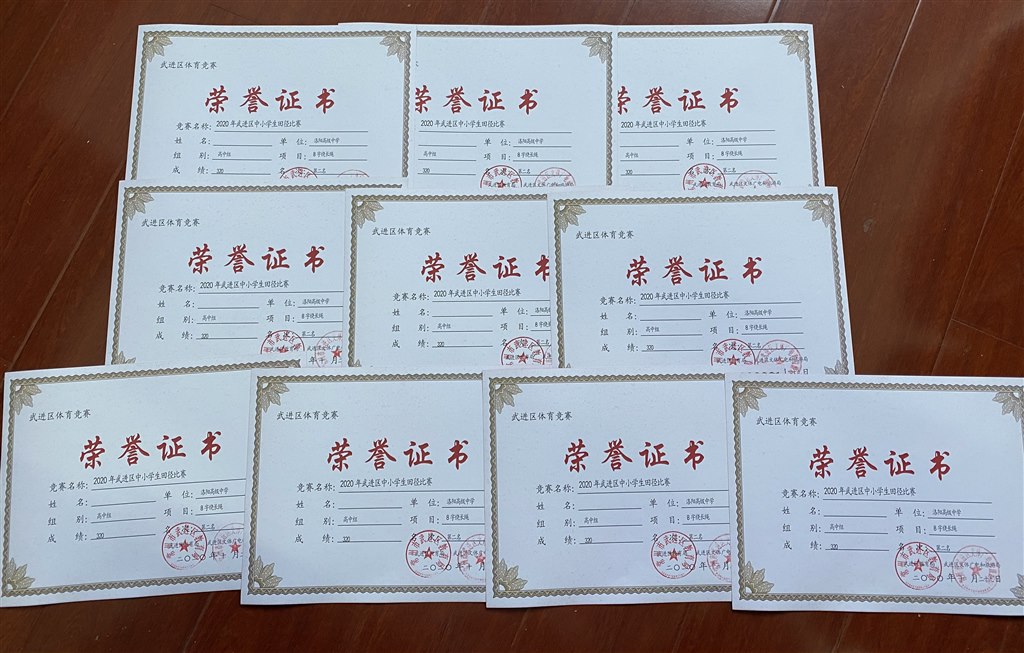 武进区体育竞赛
荣誉证书
竞赛名称：2020 年武进区中小学生田径比赛
姓 名： 单 位：洛阳高级中学
组 别：高中组 项 目：8字绕长绳
成 绩：320 名 第二名
荣誉证书
2020 年武进区中小学生田径比赛
单 位：洛阳高级中学
高中组 项 目：8字绕长绳
320 名 第二名
荣誉证书
2020 年武进区中小学生田径比赛
单 位：洛阳高级中学
高中组 项 目：8字绕长绳
320 第二名
武进区体育竞赛
荣誉证书
竞赛名称：2020 年武进区中小学生田径比赛
姓 名： 单 位：洛阳高级中学
组 别：高中组 项 目：8字绕长绳
成 绩：320 第二名
武进区体育竞赛
荣誉证书
竞赛名称：2020 年武进区中小学生田径比赛
姓 名： 单 位：洛
组 别：高中组 项 目：8字
成 绩：320
武进区体育竞赛
荣誉证书
竞赛名称：2020 年武进区中小学生田径比赛
姓 名： 单 位：洛阳高级中学
组 别：高中组 项 目：8字绕长绳
成 绩：320 第二名
武进区体育竞赛
荣誉证书
竞赛名称：2020 年武进区中小学生田径比赛
姓 名： 单 位：洛阳高级中学
组 别：高中组 项 目：8字绕长绳
成 绩：320 名 第二名
二〇二〇年
武进区体育竞赛
荣誉证书
竞赛名称：2020 年武进区中小学生田径比赛
姓 名： 单 位：洛阳高级中学
组 别：高中组 项 目：8字绕长绳
成 绩：320 第二名
二〇二〇年 月
武进区体育竞赛
荣誉证书
竞赛名称：2020 年武进区中小学生田径比赛
姓 名： 单 位：洛阳高级中学
组 别：高中组 项 目：8字绕长绳
成 绩：320 第二名
二〇二〇年 月
武进区体育竞赛
荣誉证书
竞赛名称：2020 年武进区中小学生田径比赛
姓 名： 单 位：洛阳高级中学
组 别：高中组 项 目：8字绕长绳
成 绩：320 名 第二名
二〇二〇年 月 日